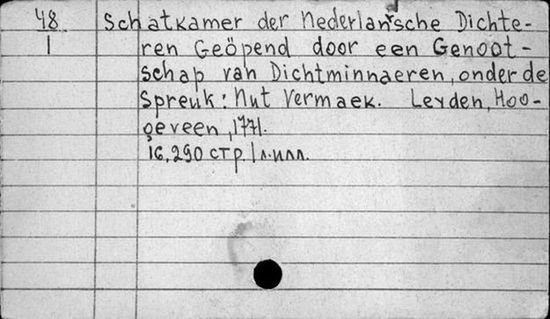 48 Schatkamer der Nederlantsche Dichte-
1 ren Geöpend door een Genoot-
schap van Dichtminnaeren, onder de
Spreuk: Nut Vermaek. Leyden, Hoo-
geveen, 1771.
16, 290 стр. 1 л. илл.